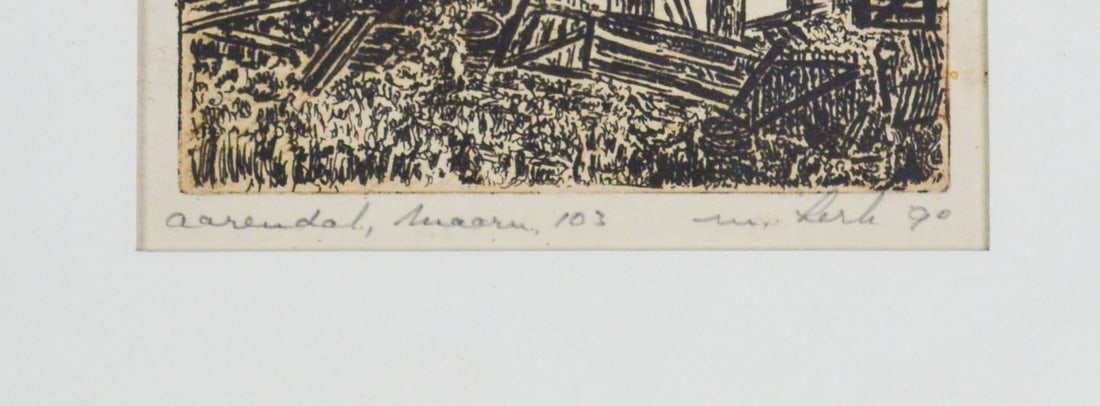 aarendal, Maarn, 103 m. Lerk 90